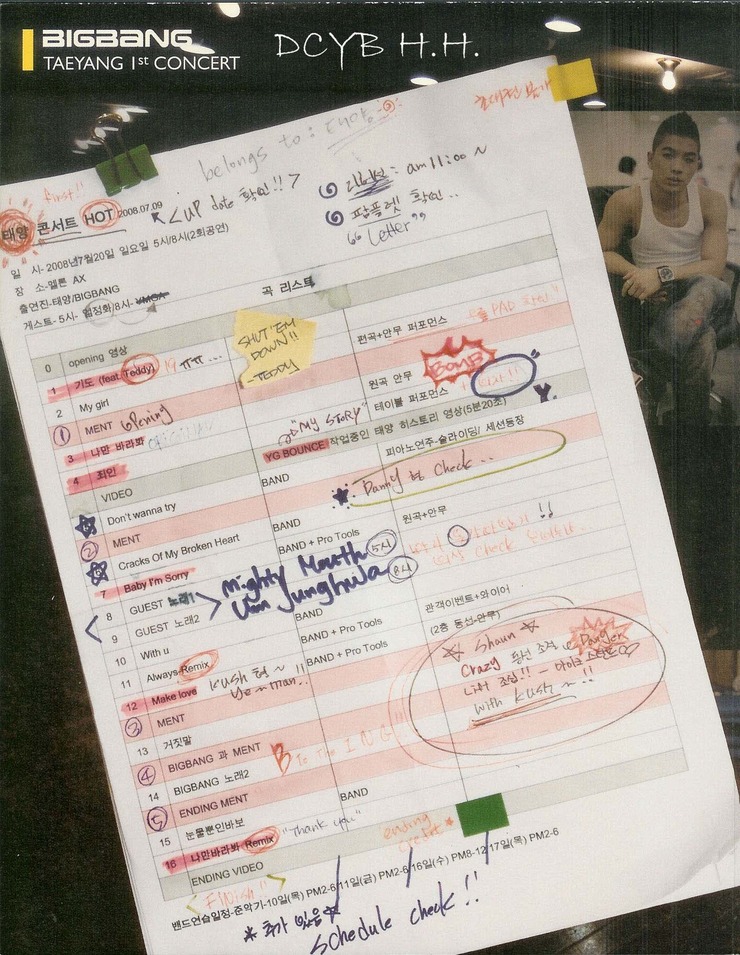 BIGBANG
TAEYANG 1st CONCERT
DCYB H.H.
belongs to : 태양
First!!
< UP date 확인!! 7
리허설 : am 11:00 ~
팜플렛 확인..
"Letter"
태양 콘서트 HOT 2008.07.09
일 시- 2008년7월20일 일요일 5시/8시(2회공연)
장 소-멜론 AX
출연진-태양/BIGBANG
게스트- 5시- 엄정화/8시-
곡 리스트
0 opening 영상
1 기도 (feat. Teddy) ㅠㅠ... 편곡+안무 퍼포먼스
SHUT 'EM
DOWN!!
-TEDDY
2 My girl 원곡 안무
BOMB
① MENT opening 테이블 퍼포먼스
3 나만 바라봐 ORIGINAL "MY STORY"
4 죄인 YG BOUNCE 작업중인 태양 히스토리 영상(5분20초)
VIDEO BAND 피아노연주-슬라이딩/ 세션등장
Danny 형 Check..
Don't wanna try
② MENT BAND
Cracks Of My Broken Heart BAND + Pro Tools 원곡+안무
7 Baby I'm Sorry
8 GUEST 노래1 Mighty Mouth 5시
9 GUEST 노래2 Um Junghwa 8시
10 With u BAND 관객이벤트+와이어
11 Always-Remix BAND + Pro Tools (2층 동선-안무)
12 Make love Kush 형~!! BAND + Pro Tools
Ye~man..
Shaun
Crazy 동선 조절
Danger
with Kush ~!!
③ MENT
13 거짓말
④ BIGBANG 과 MENT B To The I N G!!
14 BIGBANG 노래2
⑤ ENDING MENT
15 눈물뿐인바보 BAND
16 나만바라봐 Remix "Thank you"
ending credit *
ENDING VIDEO
< Finish!! >
밴드연습일정-준악기-10일(목) PM2-6/11일(금) PM2-6/16일(수) PM8-12/17일(목) PM2-6
* 추가 있음
Schedule check!!